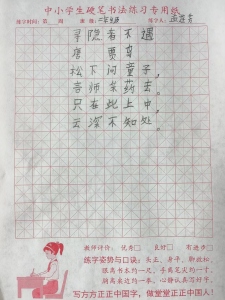 中小学生硬笔书法练习专用纸
练字时间：第 周 班级：二年级 练字人：
寻隐者不遇
唐 贾岛
松下问童子，
言师采药去。
只在此山中，
云深不知处。
教师评价： 优秀□ 良好□ 有进步□
练字姿势与口诀：头正、身平、脚放松，
眼离书本约一尺，手离笔尖约一寸，
胸离桌边约一本，心静认真写好字。
写方方正正中国字，做堂堂正正中国人！